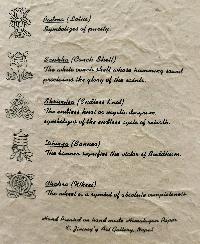 Padma (Lotus)
Symbolizes of purity.
Sankha (Conch Shell)
The white conch shell whose humming sound
proclaims the glory of the saints.
(Endless knot)
The endless knot or mystic
symbolizes of the endless cycle of rebirth.
(Banner)
The banner the victor of Buddhism.
Chakra (Wheel)
The wheel is a symbol of absolute completeness
Hand Printed on hand made Himalayan Paper
Art Gallery, Nepal